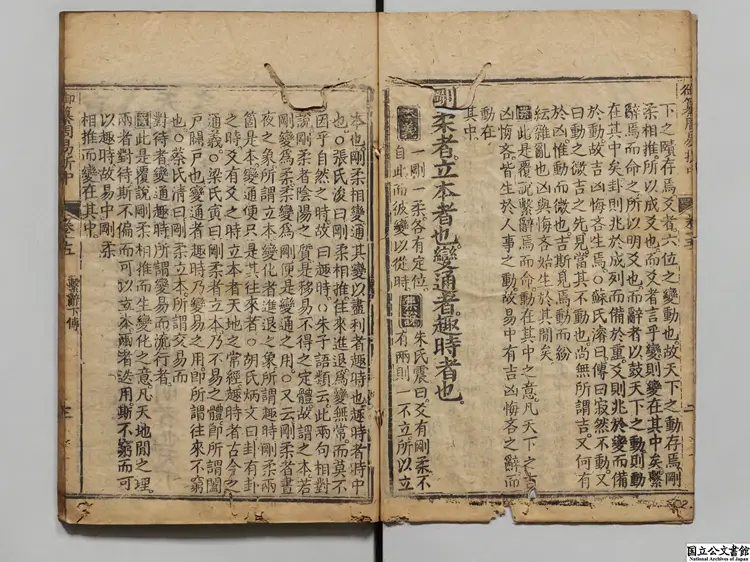 下之賾存焉爻者六位之變動也故天下之動存焉剛
柔相推所以成爻也而爻者言乎變則變在其中矣繫
辭焉而命之所以明爻也而辭者以鼓天下之動則動
在其中矣卦則兆於成列而備於重爻則兆於變而備
於動故吉凶悔吝生焉○蘇氏濬曰傳曰寂然不動又
曰動之微吉之先見當其不動也尚無所謂吉又何有
於凶惟動而微也吉斯見焉動而紛
紜雜亂也凶與悔吝始生於其閒矣
案此是覆說繫辭焉而命動在其中之意凡天下之吉
凶悔吝皆生於人事之動故易中有吉凶悔吝之辭而
動在
其中
剛柔者立本者也變通者趣時者也
本義 一剛一柔各有定位
自此而彼變以從時
集說 朱氏震曰爻有剛柔不
有兩則一不立所以立
本也剛柔相變通其變以盡利者趣時也趣時者時中
也○張氏浚曰剛柔相推往來進退爲變無常而莫不
因乎自然之時故曰趣時○朱子語類云此兩句相對
說剛柔者陰陽之質是移易不得之定體故謂之本若
剛變爲柔柔變爲剛便是變通之用○又云剛柔者晝
夜之象所謂立本變化者進退之象所謂趣時剛柔兩
箇是本變通便只是其往來者○胡氏炳文曰卦有卦
之時爻有爻之時立本者天地之常經趣時者古今之
通義○梁氏寅曰剛柔者立本乃不易之體卽所謂闔
戶闢戶也變通者趣時乃變易之用卽所謂往來不窮
也○蔡氏清曰剛柔立本所謂交易而
對待者變通趣時所謂變易而流行者
案此是覆說剛柔相推而生變化之意凡天地閒之理
兩者對待斯不偏而可以立本兩者迭用斯不窮而可
以趣時故易中剛柔
相推而變在其中
御纂周易折中 卷十五 繫辭下傳
国立公文書館
National Archives of Japan